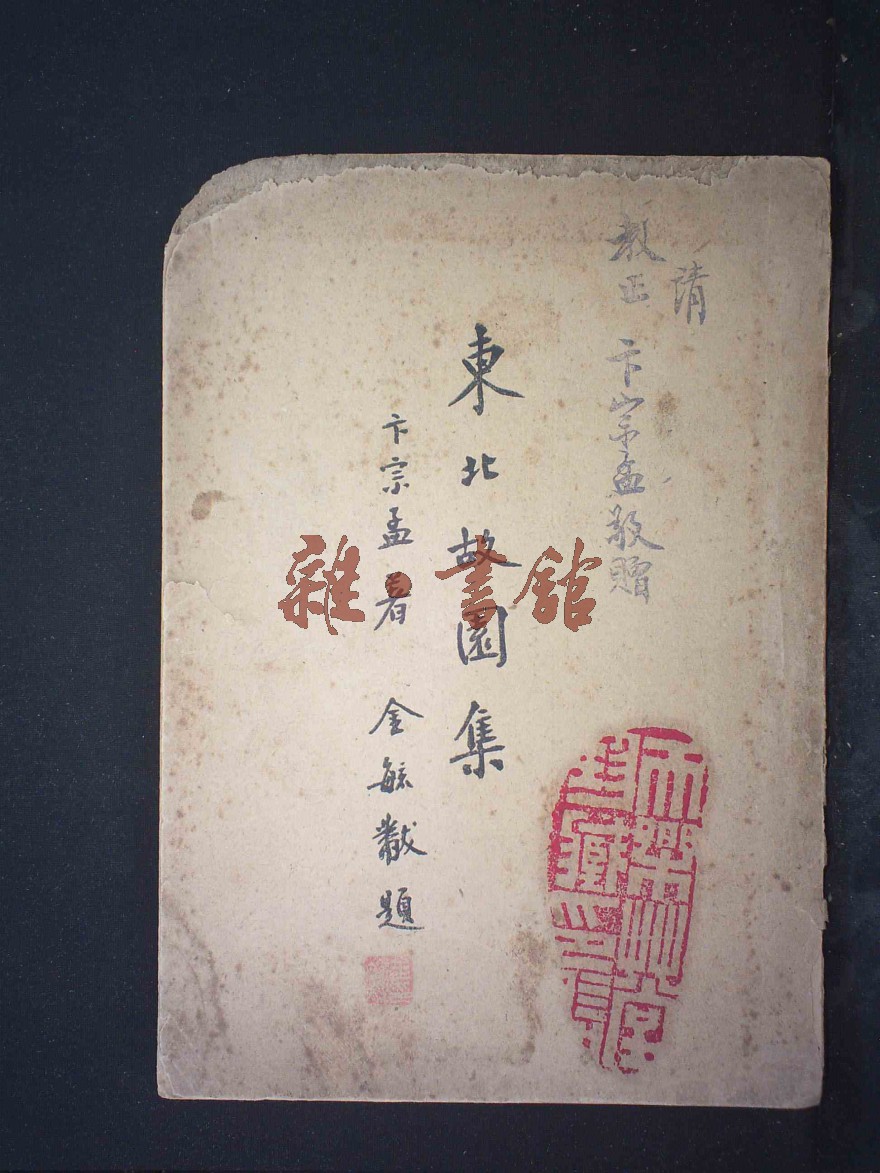 請
教正 卞宗孟敬贈
東北故園集
卞宗孟著 金毓黻題
雜·書館